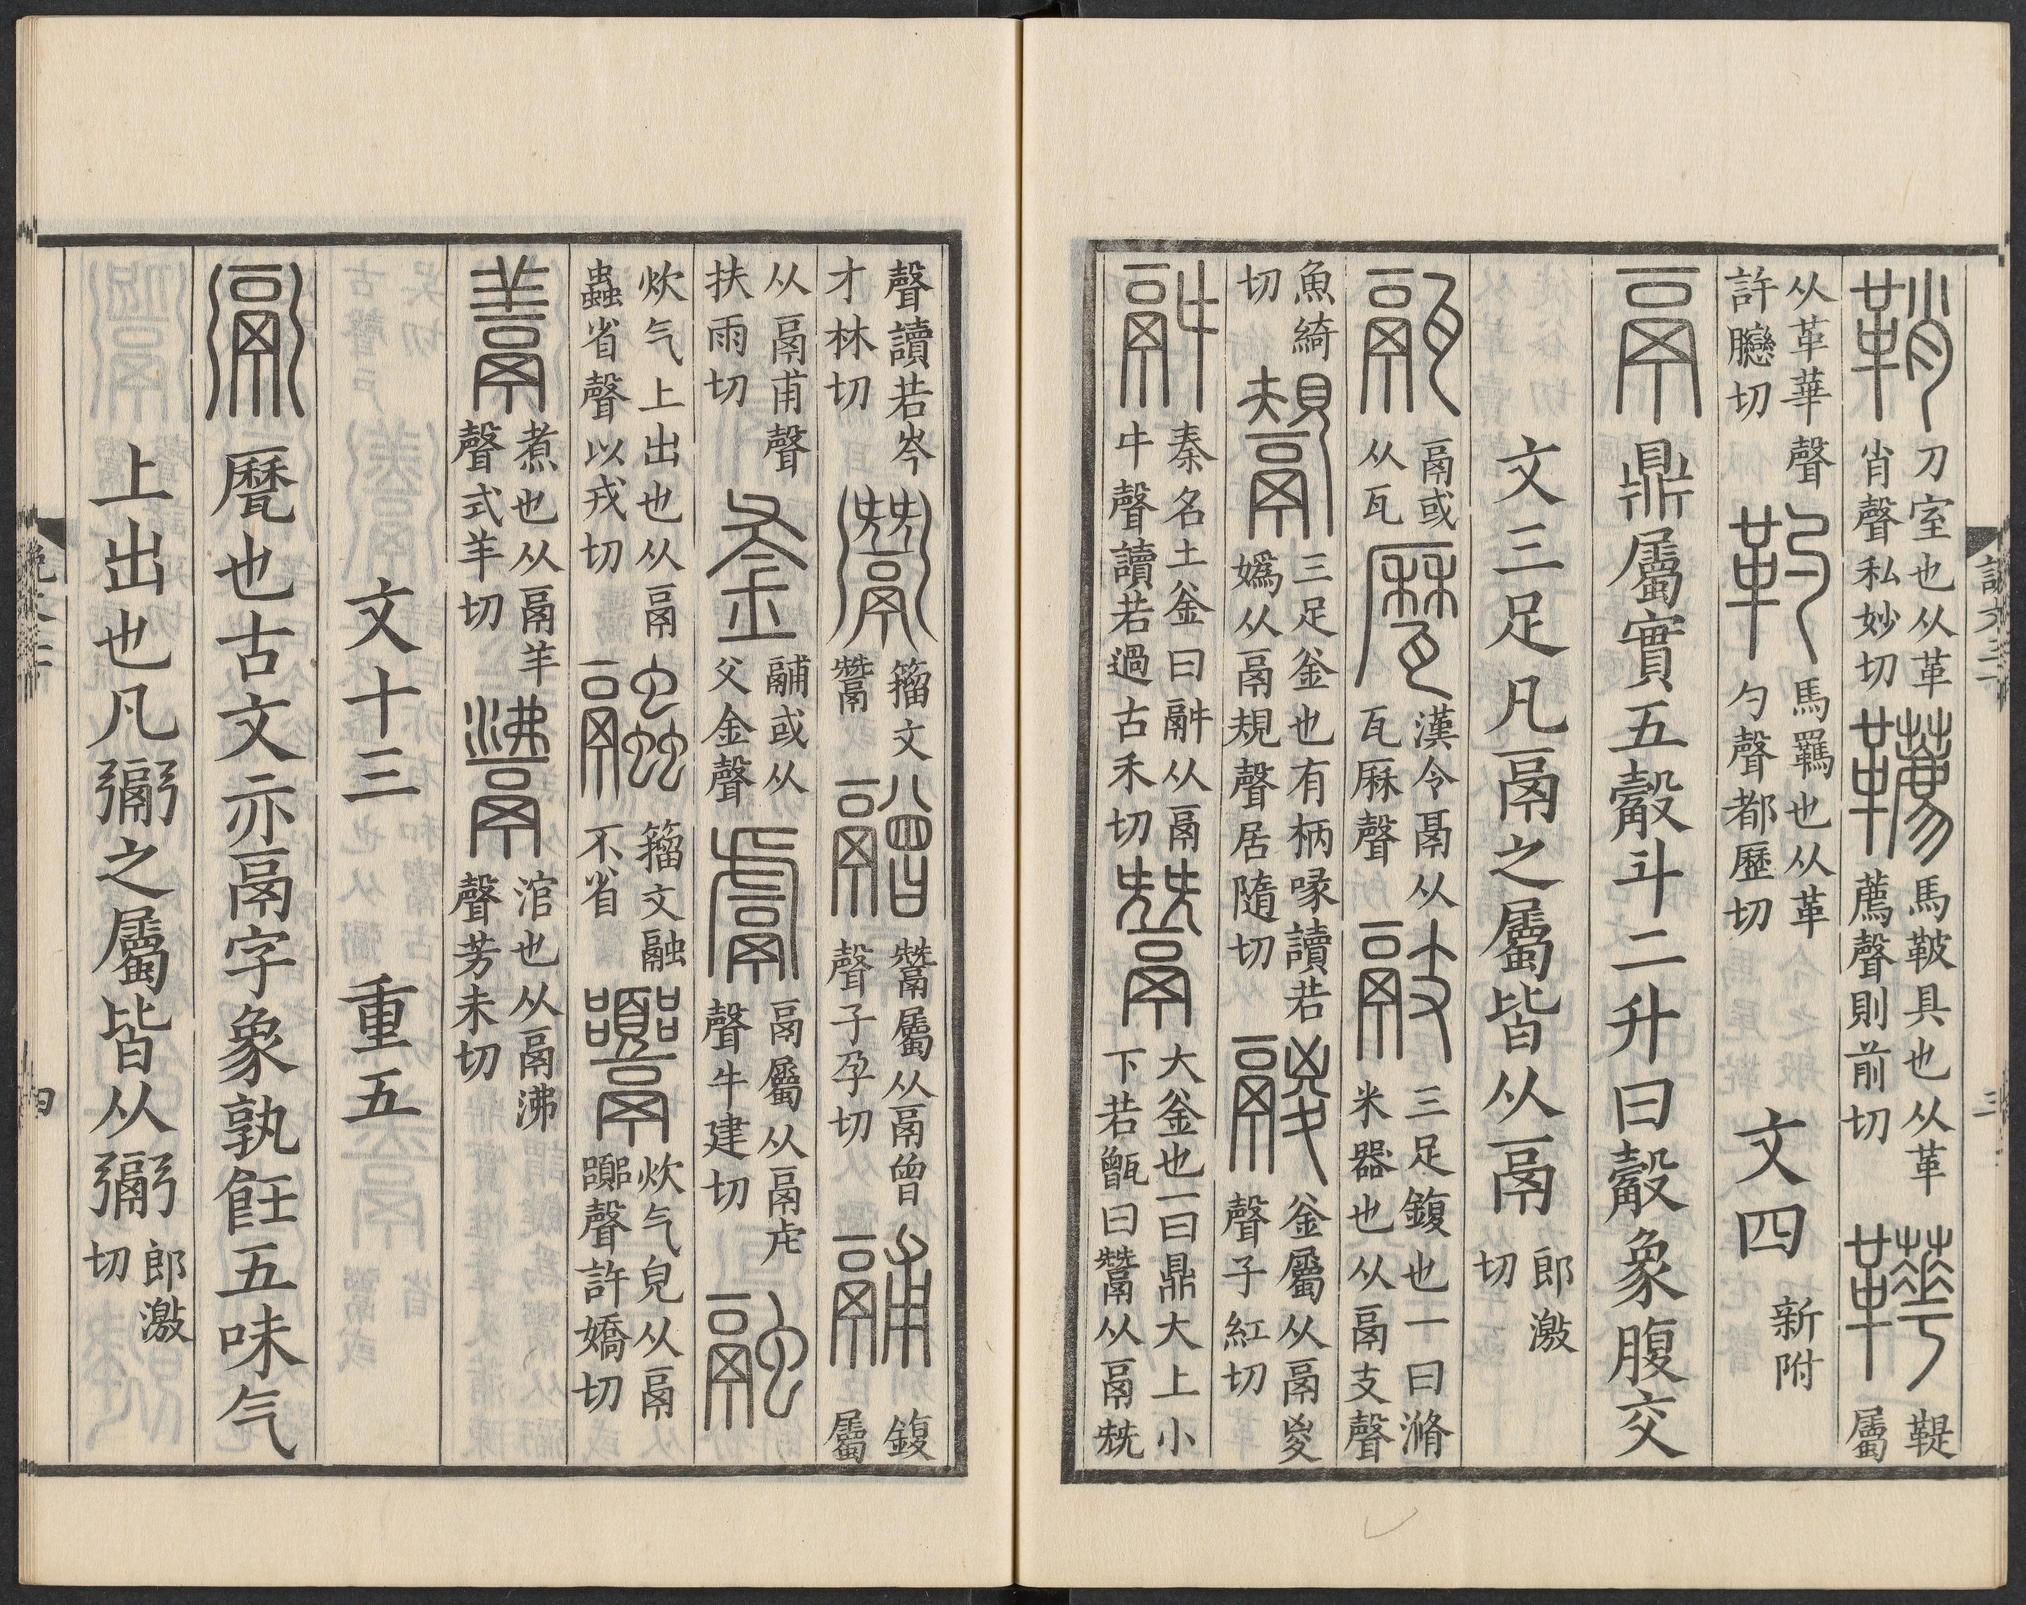 鞘刀室也从革肖聲私妙切韉馬鞁具也从革薦聲則前切鞾鞮屬
从革華聲許𦡱切靮馬羈也从革勺聲都歷切 文四新附
鬲鼎屬實五觳斗二升曰觳象腹交
文三足凡鬲之屬皆从鬲郎激切
䰛鬲或从瓦䥶漢令鬲从瓦厤聲䰙三足鍑也一曰滫米器也从鬲支聲
魚綺切鬹三足釜也有柄喙讀若嬀从鬲規聲居隨切鬷釜屬从鬲㚇聲子紅切
秦名土釜曰䰞从鬲牛聲讀若過古禾切鬵大釜也一曰鼎大上小下若甑曰鬵从鬲兓
聲讀若岑才林切籀文鬵䰝鬵屬从鬲曾聲子孕切鬴鍑屬
从鬲甫聲扶雨切釜鬴或从父金聲鬳鬲屬从鬲虍聲牛建切融
炊气上出也从鬲蟲省聲以戎切籀文融不省炊气皃从鬲嚻聲許嬌切
煮也从鬲羊聲式羊切涫也从鬲沸聲芳未切
文十三 重五
䰜厤也古文亦鬲字象孰飪五味气
上出也凡䰜之屬皆从䰜郎激切